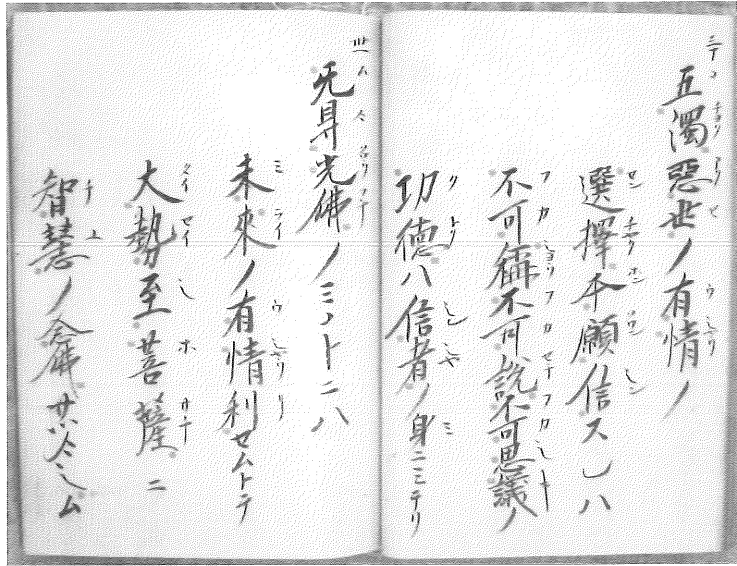 五濁惡世ノ有情ノ
選擇本願信スレハ
不可稱不可說不可思議ノ
功德ハ信者ノ身ニミテリ
无㝵光佛ノミコトニハ
未來ノ有情利セムトテ
大勢至菩薩ニ
智慧ノ念佛サツケシム